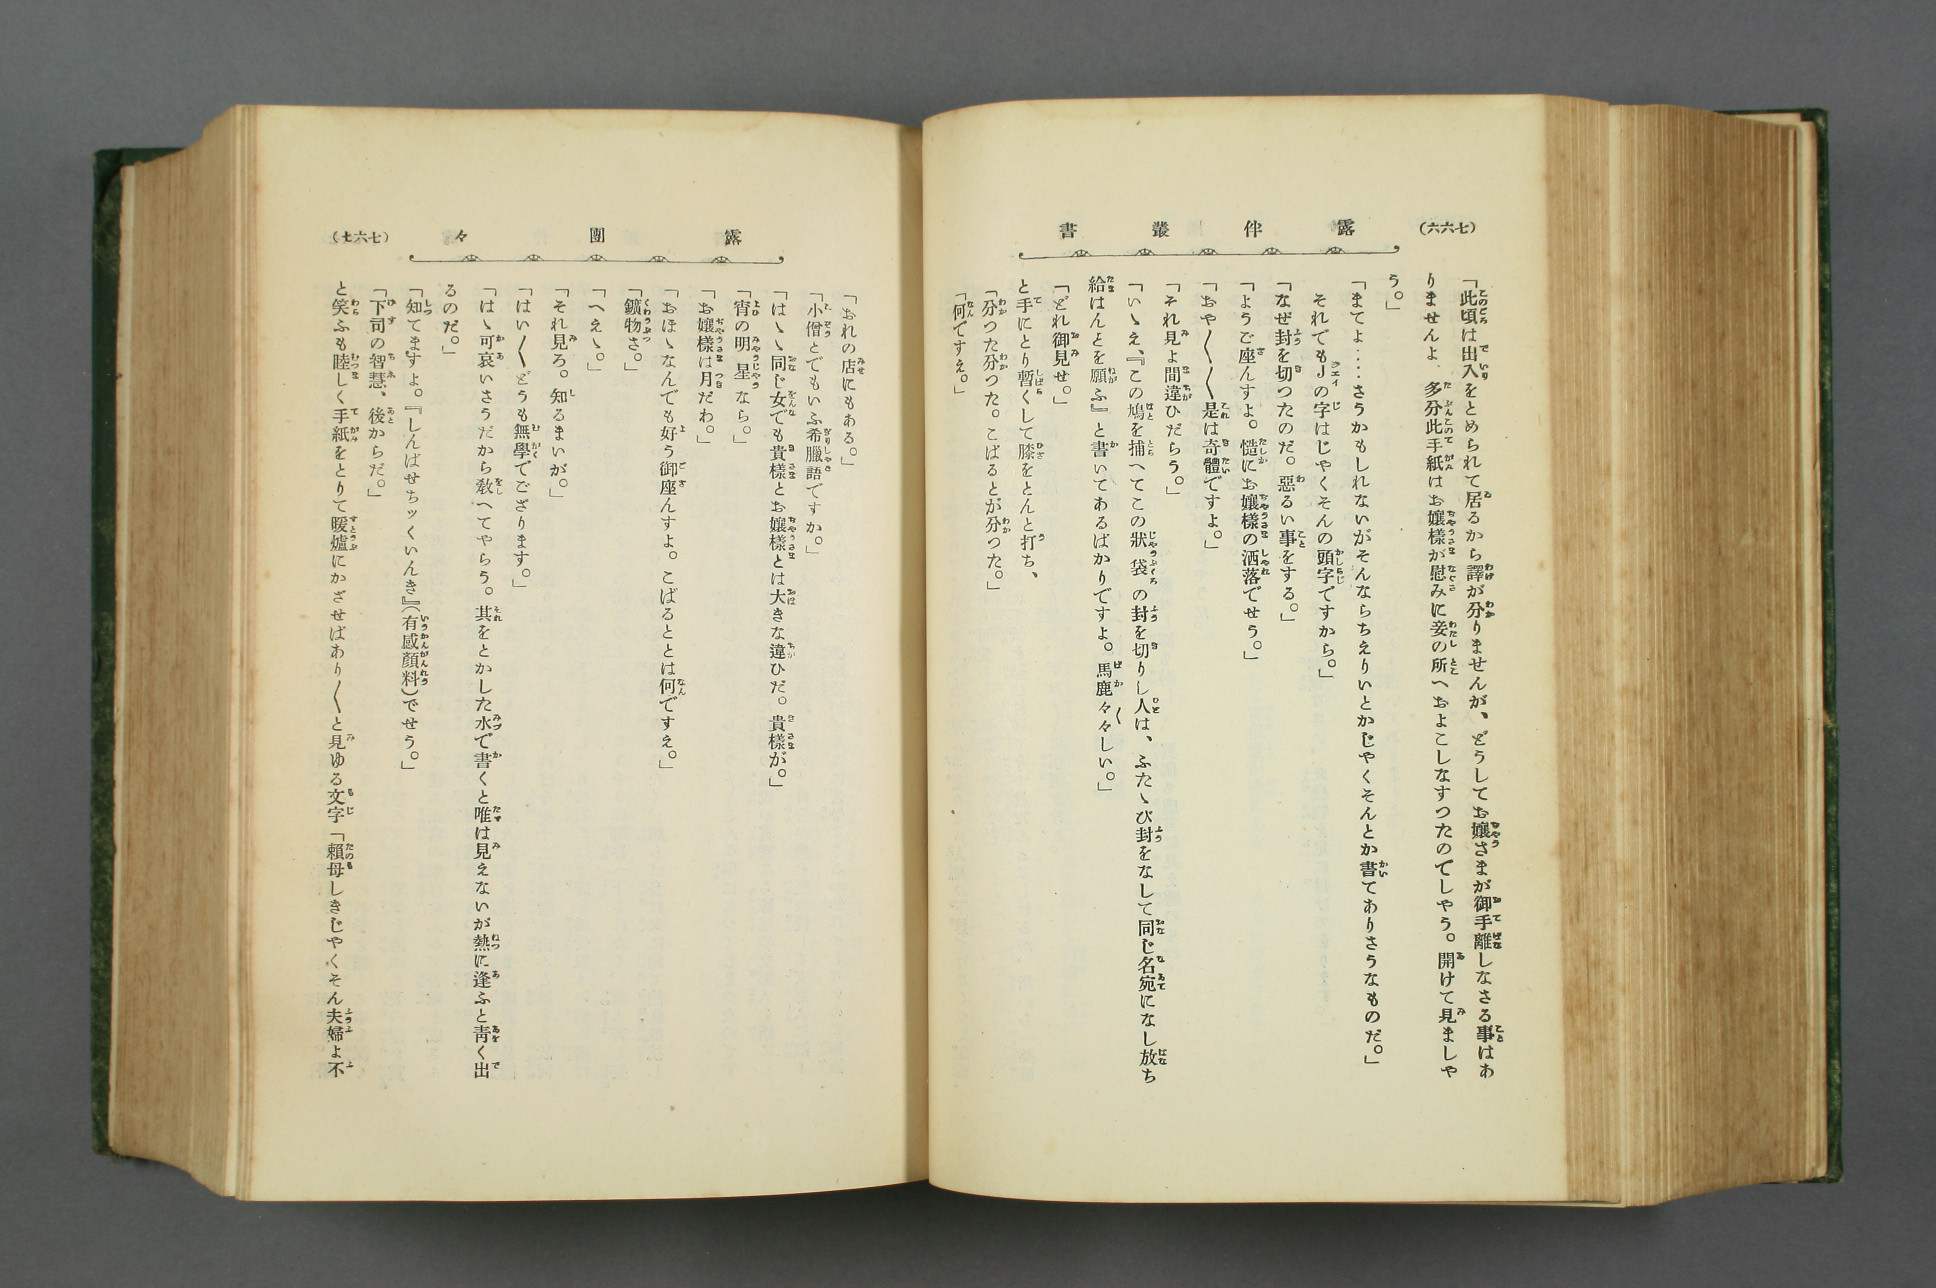 (七六六)
露伴叢書
「此頃は出入をとめられて居るから譯が分りませんが、どうしてお孃さまが御手離しなさる事はあ
りませんよ 多分此手紙はお孃樣が慰みに妾の所へおよこしなすつたのでしやう。開けて見ましや
う。」
「まてよ‥‥さうかもしれないがそんならちえりいとかじやくそんとか書てありさうなものだ。」
それでもJの字はじやくそんの頭字ですから。」
「なぜ封を切つたのだ。惡るい事をする。」
「ようご座んすよ。慥にお孃樣の洒落でせう。」
「おや〱〱是は奇體ですよ。」
「それ見よ間違ひだらう。」
「いゝえ、『この鳩を捕へてこの狀袋の封を切りし人は、ふたゝび封をなして同じ名宛になし放ち
給はんとを願ふ』と書いてあるばかりですよ。馬鹿々々しい。」
「どれ御見せ。」
と手にとり暫くして膝をとんと打ち、
「分つた分つた。こばるとが分つた。」
「何ですえ。」
露團々
(七六七)
「おれの店にもある。」
「小僧とでもいふ希臘語ですか。」
「はゝゝ同じ女でも貴樣とお孃樣とは大きな違ひだ。貴樣が。」
「宵の明星なら。」
「お孃樣は月だわ。」
「おほゝなんでも好う御座んすよ。こばるととは何ですえ。」
「鑛物さ。」
「へえゝ。」
「それ見ろ。知るまいが。」
「はい〱どうも無學でござります。」
「はゝ可哀いさうだから敎へてやらう。其をとかした水で書くと唯は見えないが熱に逢ふと靑く出
るのだ。」
「知てますよ。『しんぱせちックいんき』(有感顏料)でせう。」
「下司の智慧、後からだ。」
と笑ふも睦しく手紙をとりて暖爐にかざせばあり〱と見ゆる文字「賴母しきじやくそん夫婦よ不